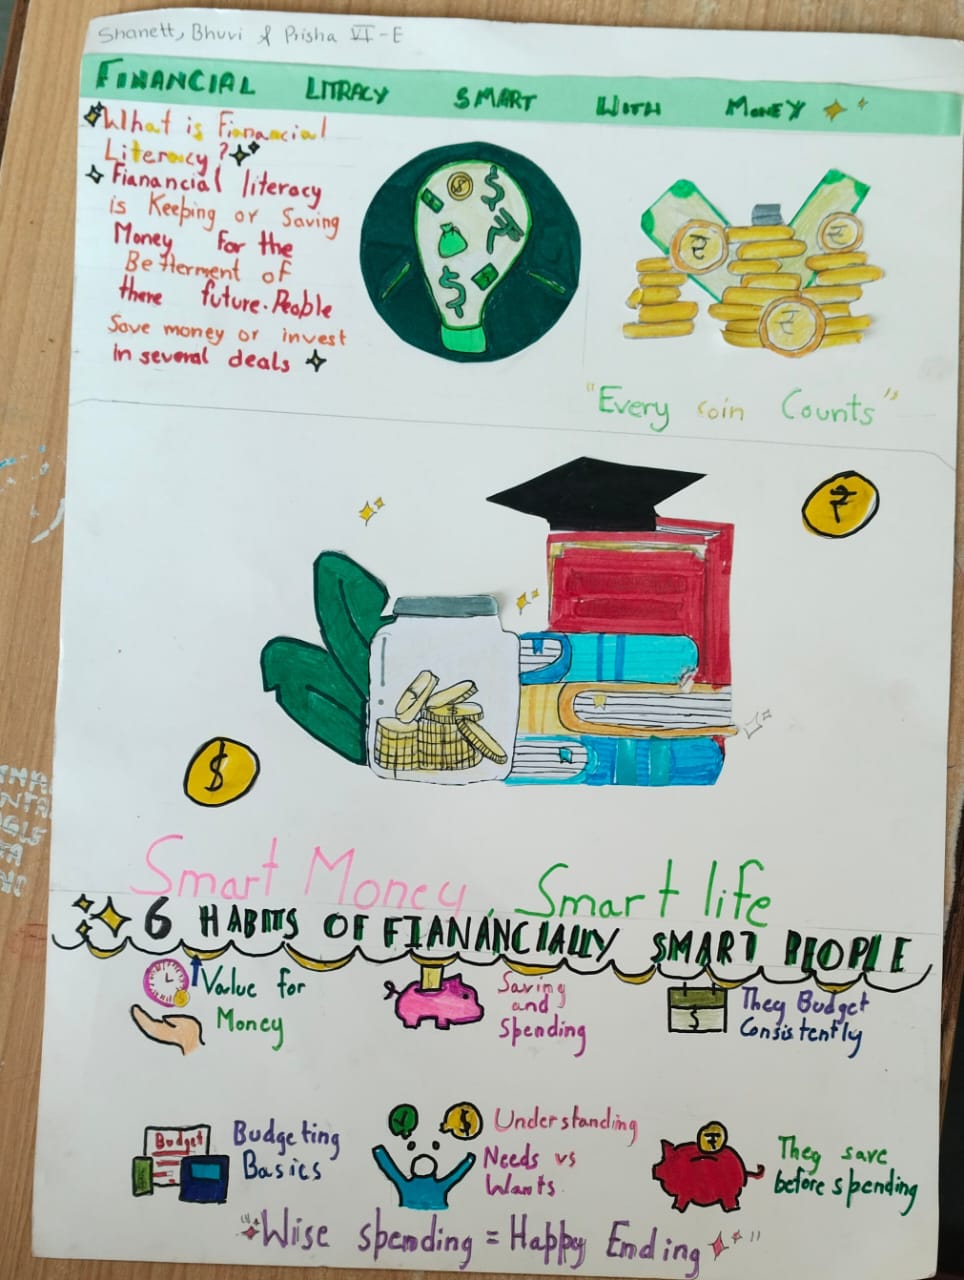 Shanett, Bhuvi & Prisha VI-E
FINANCIAL LITRACY SMART WITH MONEY
What is Fianancial
Literacy?
Fianancial literacy
is Keeping or Saving
Money for the
Betterment of
there future. People
Save money or invest
in several deals
"Every coin Counts"
₹
$
Smart Money, Smart life
6 HABITS OF FIANANCIALLY SMART PEOPLE
Value for
Money
Saving
and
Spending
They Budget
Consistently
$
Budget
Budgeting
Basics
Understanding
Needs vs
Wants
They save
before spending
"Wiise spending = Happy Ending"